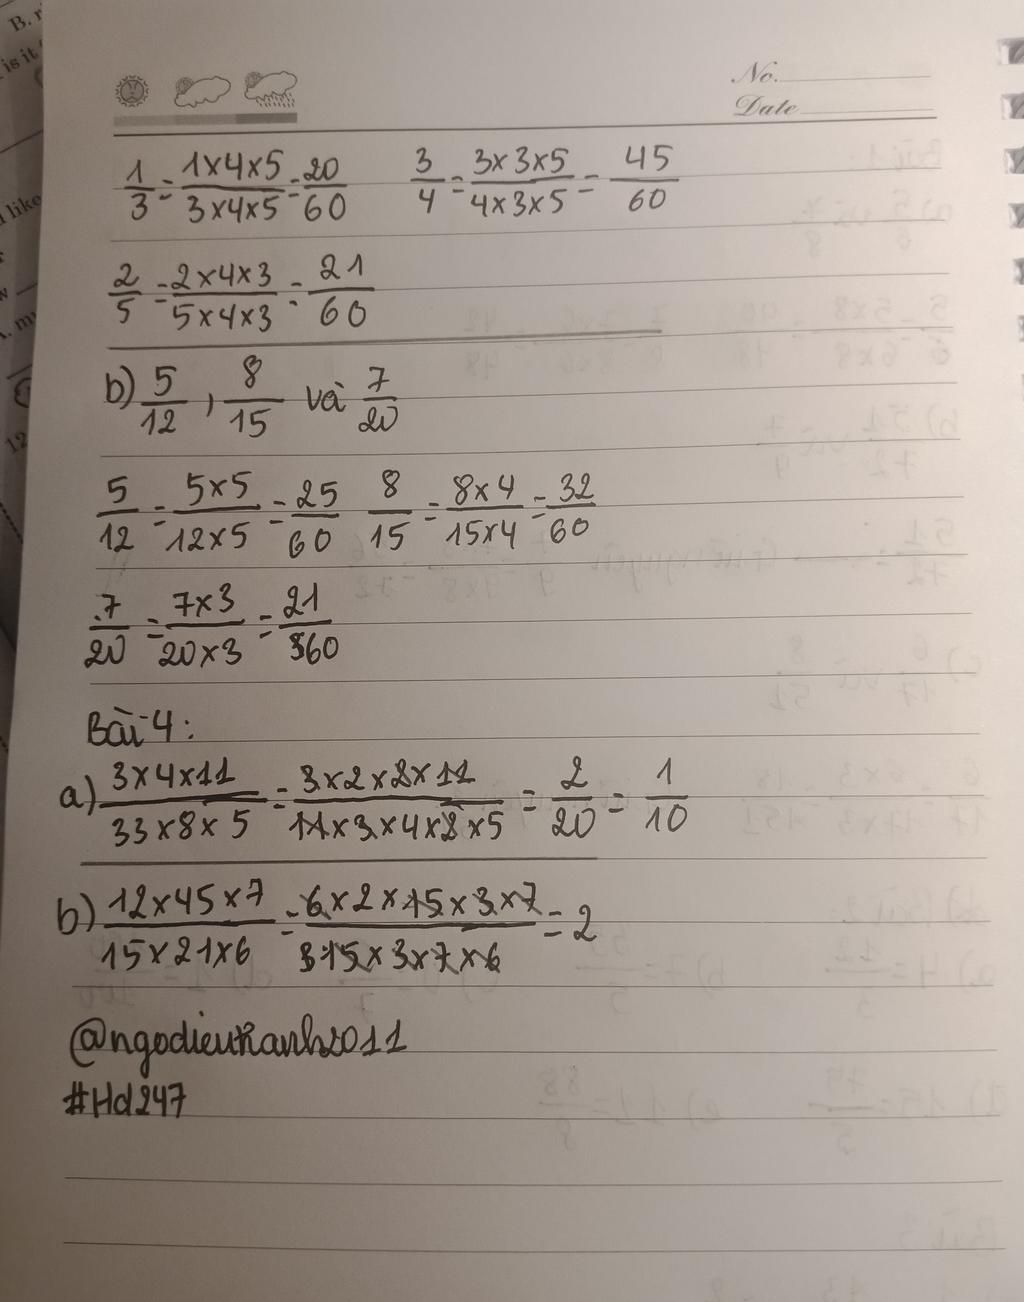 B.
is it
like
No.
Date
1/3 = 1×4×5/3×4×5 = 20/60 3/4 = 3×3×5/4×3×5 = 45/60
2/5 = 2×4×3/5×4×3 = 21/60
b) 5/12 , 8/15 và 7/20
5/12 = 5×5/12×5 = 25/60 8/15 = 8×4/15×4 = 32/60
7/20 = 7×3/20×3 = 21/60
Bài 4:
a) 3×4×11/33×8×5 = 3×2×2×11/11×3×4×2×5 = 2/20 = 1/10
b) 12×45×7/15×21×6 = 6×2×15×3×7/15×3×7×6 = 2
@ngodieukanh2011
#Hd247